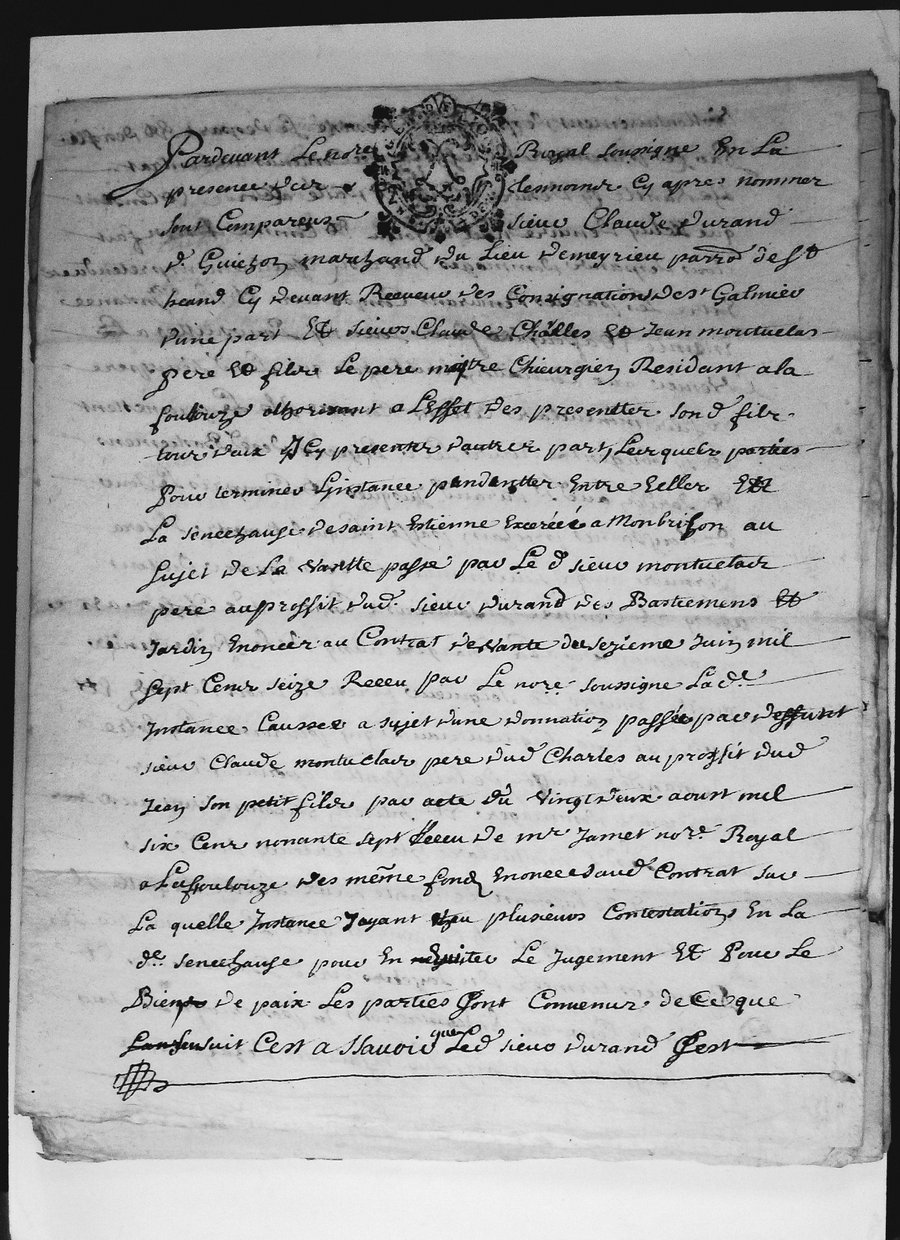 Pardevant Le nore Royal soussigne En La
presence des tesmoins Cy apres nommer
sont Compareus sieur Claude durand
de Guichon marchand du Lieu de meyrieu parrod de St
heand Cy devant Receveur des Consignations de st Galmier
d'une part Et sieurs Claude Charles Et Jean montuclar
pere Et fils Le pere maitre Chieurgien Residant a la
foulouze athorizant a L'effet des presentter son d filz
tous deux Cy presenter d'autres part, Lesquels parties
Pour terminer L'instance pendentter Entre Eller En
La senechausé de saint Estienne Exercée a Monbrison au
sujet de La Vantte passé par Le d sieur montuclair
pere au proffit dud. sieur durand des Bastiemens Et
Jardin Enoncer au Contrat de vante du sezieme Juin mil
sept Cens seize Receu par Le nore soussigne La de
Instance Caussee a sujet d'une donnation passée par deffunt
sieur Claude montuclair pere dud Charles au proffit dud
Jean son petit filz par acte du Vingt deux aoust mil
six Cens nonante sept Receu de mr Jamet nore Royal
a La foulouze des meme fond Enoncee audt Contrat sur
La quelle Instance Jayant Heu plusieurs Contestations En La
de senechause pour En Eviter Le Jugement Et Pour Le
Bien de paix Les parties sont Convenus de Ce que
sensuit C'est a scavoir que Led sieur durand s'est